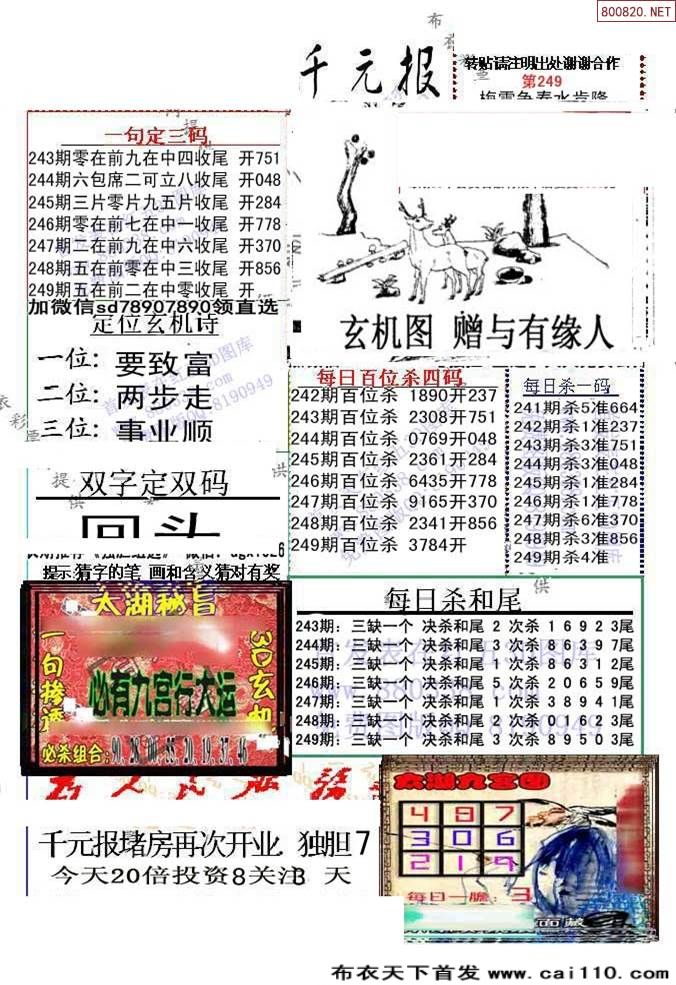 800820.NET
千元报
转贴请注明出处谢谢合作
第249
一句定三码
243期零在前九在中四收尾 开751
244期六包席二可立八收尾 开048
245期三片零片九五片收尾 开284
246期零在前七在中一收尾 开778
247期二在前九在中六收尾 开370
248期五在前零在中三收尾 开856
249期五在前二在中零收尾 开
加微信sd78907890领直选
玄机图 赠与有缘人
定位玄机诗
一位: 要致富
二位: 两步走
三位: 事业顺
每日百位杀四码
242期百位杀 1890开237
243期百位杀 2308开751
244期百位杀 0769开048
245期百位杀 2361开284
246期百位杀 6435开778
247期百位杀 9165开370
248期百位杀 2341开856
249期百位杀 3784开
每日杀一码
241期杀5准664
242期杀1准237
243期杀3准751
244期杀3准048
245期杀1准284
246期杀1准778
247期杀6准370
248期杀3准856
249期杀4准
双字定双码
回头
提示:猜字的笔 画和含义猜对有奖
太湖秘旨
一句掺透
3D玄机
必有九宫行大运
必杀组合:
每日杀和尾
243期: 三缺一个 决杀和尾 2 次杀 1 6 9 2 3尾
244期: 三缺一个 决杀和尾 3 次杀 8 6 3 9 7尾
245期: 三缺一个 决杀和尾 1 次杀 8 6 3 1 2尾
246期: 三缺一个 决杀和尾 5 次杀 2 0 6 5 9尾
247期: 三缺一个 决杀和尾 1 次杀 3 8 9 4 1尾
248期: 三缺一个 决杀和尾 2 次杀 0 1 6 2 3尾
249期: 三缺一个 决杀和尾 3 次杀 8 9 5 0 3尾
太湖九宫图
4 8 7
3 0 6
2 1 9
每日一胆: 3
千元报堵房再次开业 独胆7
今天20倍投资8关注3 天
布衣天下首发 www.cai110.com